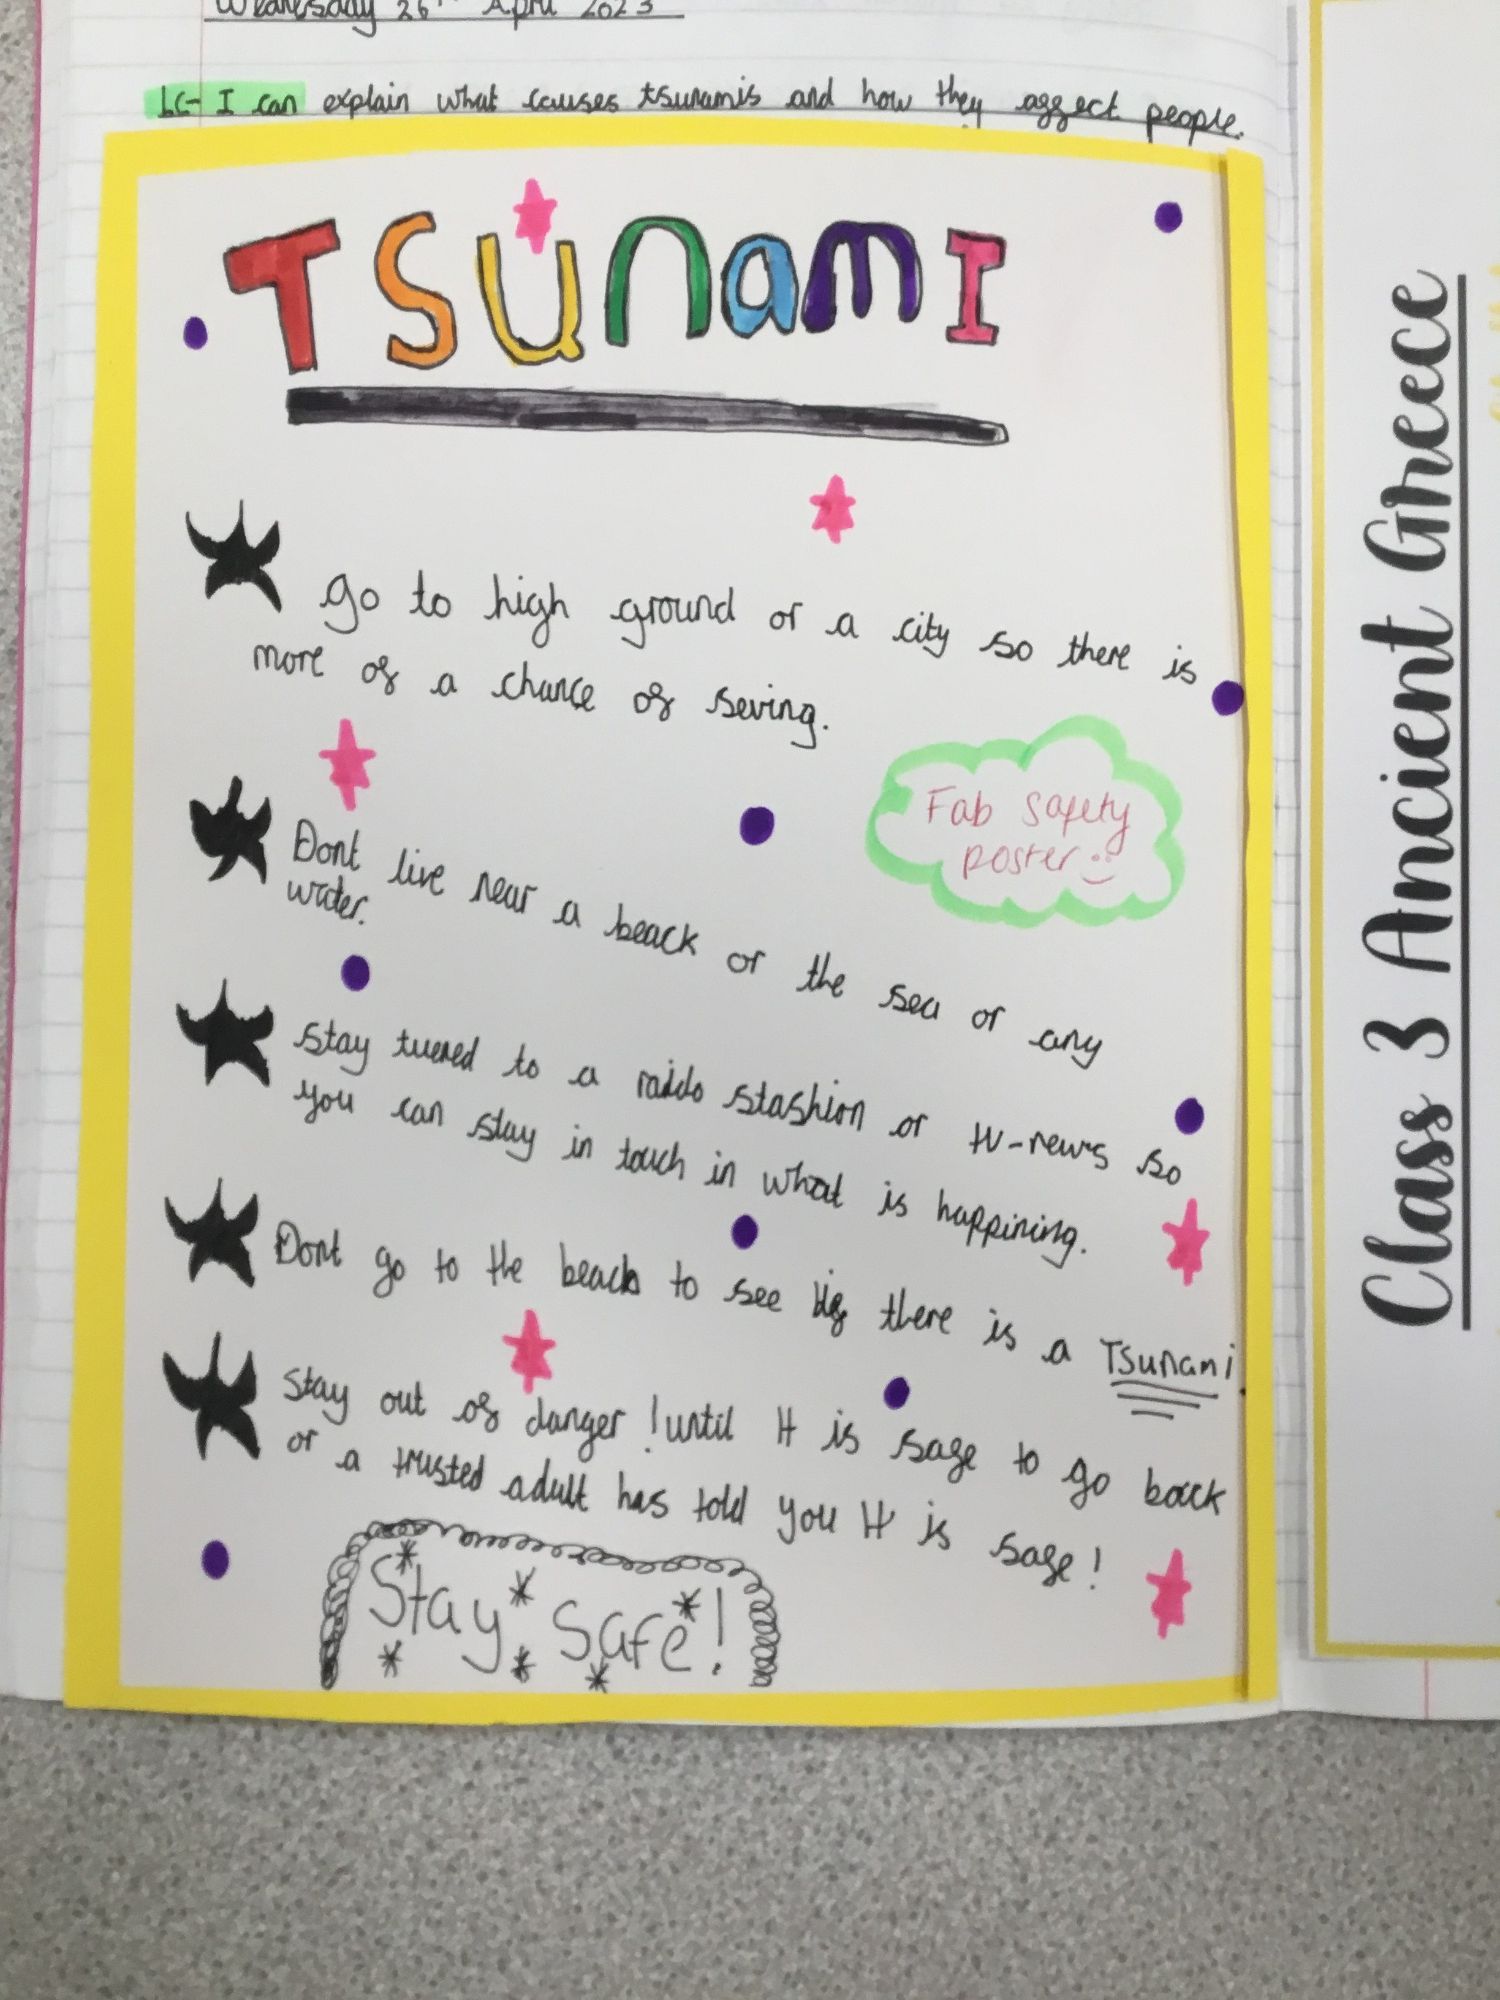 Wednesday 26th April 2023
LC- I can explain what causes tsunamis and how they affect people.
TSunamI
go to high ground or a city so there is
more of a chance of seving.
Fab safety
poster
Dont live near a beack or the sea or any
water.
Stay tuened to a raido stashion or tv-news so
you can stay in touch in what is happining.
Dont go to the beach to see there is a Tsunami.
Stay out of danger! until it is safe to go back
or a trusted adult has told you it is safe!
Stay Safe!
Class 3 Ancient Greece